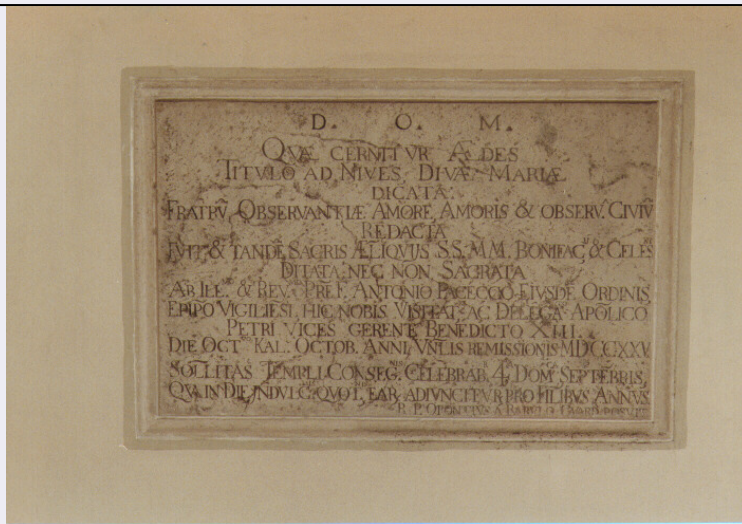 D. O. M.
QVÆ CERNITVR ÆDES
TITVLO AD NIVES DIVÆ MARIÆ
DICATA.
FRATRV̄ OBSERVANTIÆ AMORE, AMORIS & OBSERV. CIVIV̄
REDACTA
FVIT & TANDĒ SAGRIS ÆLIQVIJS S.S. M.M. BONIFAC & CELES
DITATA NEC NON SAGRATA
AB ILL. & REV. P̄RE F. ANTONIO PACECCO EIVSDĒ ORDINIS
EP̄IPO VIGILIESI, HIC NOBIS VISITAT. AC DELEGA. APOLICO
PETRI VICES GERENTE BENEDICTO XIII.
DIE OCT. KAL. OCTOB. ANNI VNLIS REMISSIONIS MDCCXXV
SOLLITAS TEMPLI CONSEG. CELEBRAB. 4 DOM. SEPTĒBRIS,
QVA IN DIE INDVLG. QVOT. EAR ADIVNCITVR PRO FILIBVS ANNVS
R. P.